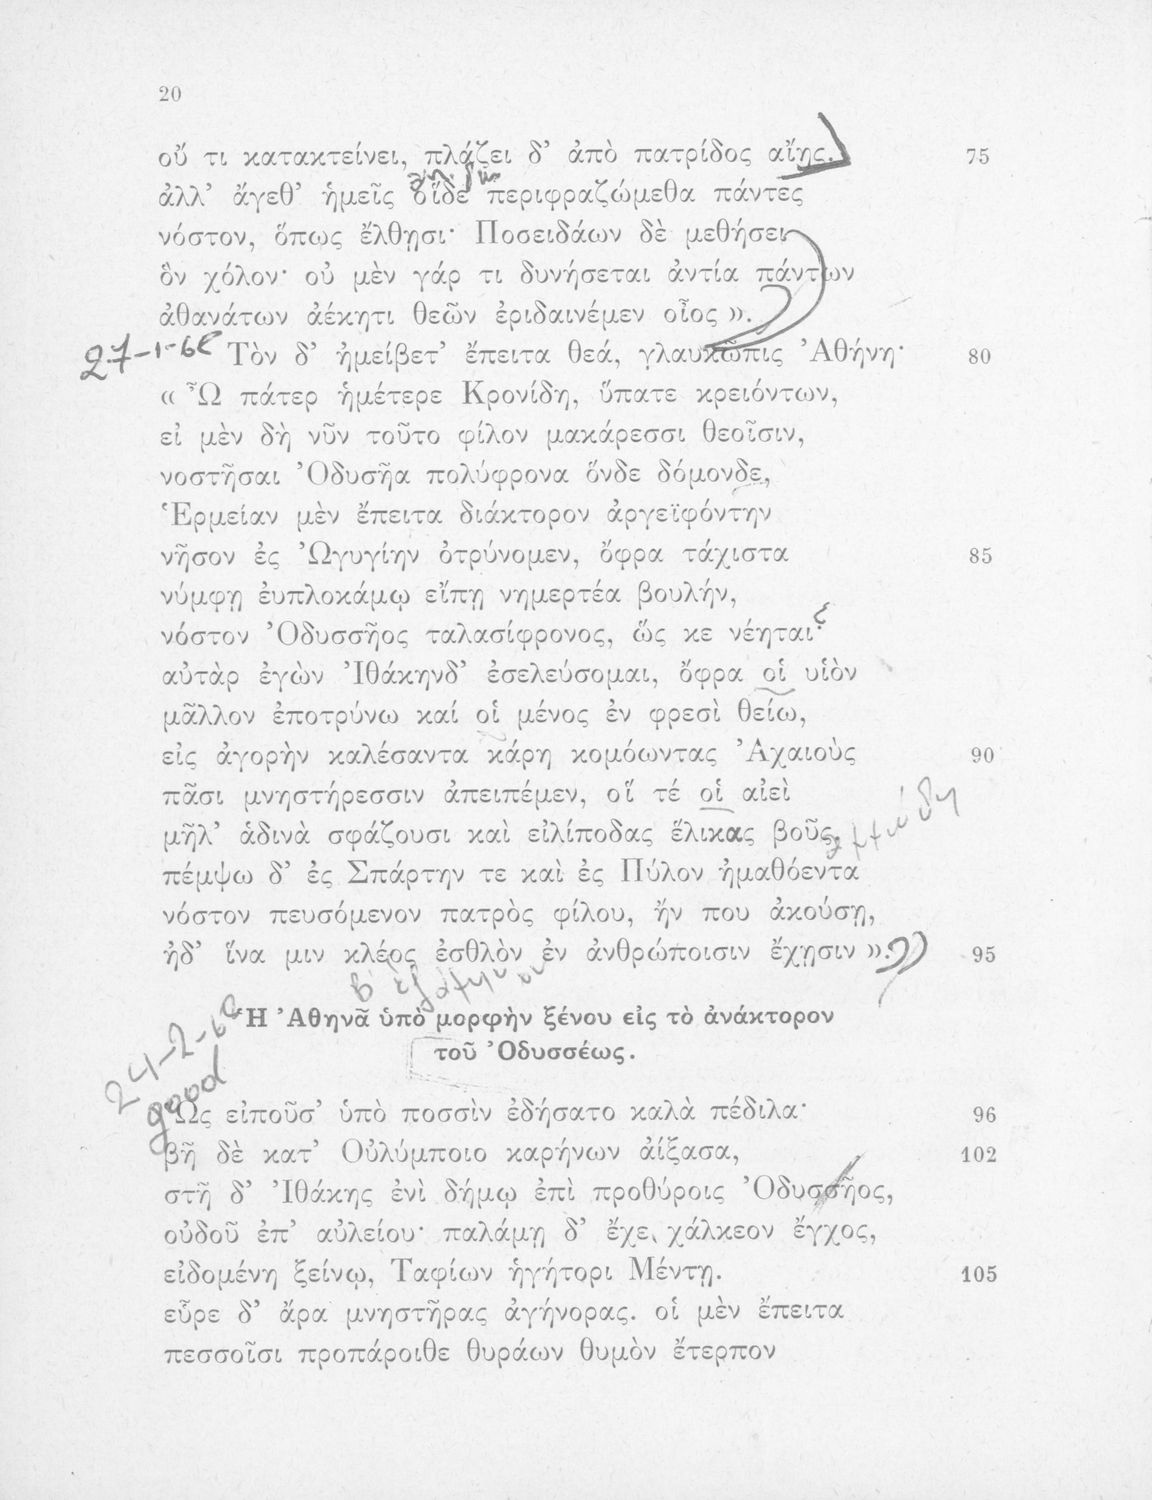 20
οὔ τι κατακτείνει, πλάζει δ’ ἀπὸ πατρίδος αἴης. 75
ἀλλ’ ἄγεθ’ ἡμεῖς οἵδε περιφραζώμεθα πάντες
νόστον, ὅπως ἔλθῃσι· Ποσειδάων δὲ μεθήσει
ὃν χόλον· οὐ μὲν γάρ τι δυνήσεται ἀντία πάντων
ἀθανάτων ἀέκητι θεῶν ἐριδαινέμεν οἶος ».
27-1-68 Τὸν δ’ ἠμείβετ’ ἔπειτα θεά, γλαυκῶπις ’Αθήνη· 80
« ῏Ω πάτερ ἡμέτερε Κρονίδη, ὕπατε κρειόντων,
εἰ μὲν δὴ νῦν τοῦτο φίλον μακάρεσσι θεοῖσιν,
νοστῆσαι ’Οδυσῆα πολύφρονα ὅνδε δόμονδε,
‘Ερμείαν μὲν ἔπειτα διάκτορον ἀργεϊφόντην
νῆσον ἐς ’Ωγυγίην ὀτρύνομεν, ὄφρα τάχιστα 85
νύμφῃ ἐυπλοκάμῳ εἴπῃ νημερτέα βουλήν,
νόστον ’Οδυσσῆος ταλασίφρονος, ὥς κε νέηται·
αὐτὰρ ἐγὼν ’Ιθάκηνδ’ ἐσελεύσομαι, ὄφρα οἱ υἱὸν
μᾶλλον ἐποτρύνω καί οἱ μένος ἐν φρεσὶ θείω,
εἰς ἀγορὴν καλέσαντα κάρη κομόωντας ’Αχαιοὺς 90
πᾶσι μνηστήρεσσιν ἀπειπέμεν, οἵ τέ οἱ αἰεὶ
μῆλ’ ἁδινὰ σφάζουσι καὶ εἰλίποδας ἕλικας βοῦς,
πέμψω δ’ ἐς Σπάρτην τε καὶ ἐς Πύλον ἠμαθόεντα
νόστον πευσόμενον πατρὸς φίλου, ἤν που ἀκούσῃ,
ἠδ’ ἵνα μιν κλέος ἐσθλὸν ἐν ἀνθρώποισιν ἔχῃσιν ». 95
24-2-68
good
‘Η ’Αθηνᾶ ὑπὸ μορφὴν ξένου εἰς τὸ ἀνάκτορον
τοῦ ’Οδυσσέως.
῝Ως εἰποῦσ’ ὑπὸ ποσσὶν ἐδήσατο καλὰ πέδιλα· 96
βῆ δὲ κατ’ Οὐλύμποιο καρήνων ἀίξασα, 102
στῆ δ’ ’Ιθάκης ἐνὶ δήμῳ ἐπὶ προθύροις ’Οδυσσῆος,
οὐδοῦ ἐπ’ αὐλείου· παλάμῃ δ’ ἔχε χάλκεον ἔγχος,
εἰδομένη ξείνῳ, Ταφίων ἡγήτορι Μέντῃ. 105
εὗρε δ’ ἄρα μνηστῆρας ἀγήνορας. οἱ μὲν ἔπειτα
πεσσοῖσι προπάροιθε θυράων θυμὸν ἔτερπον